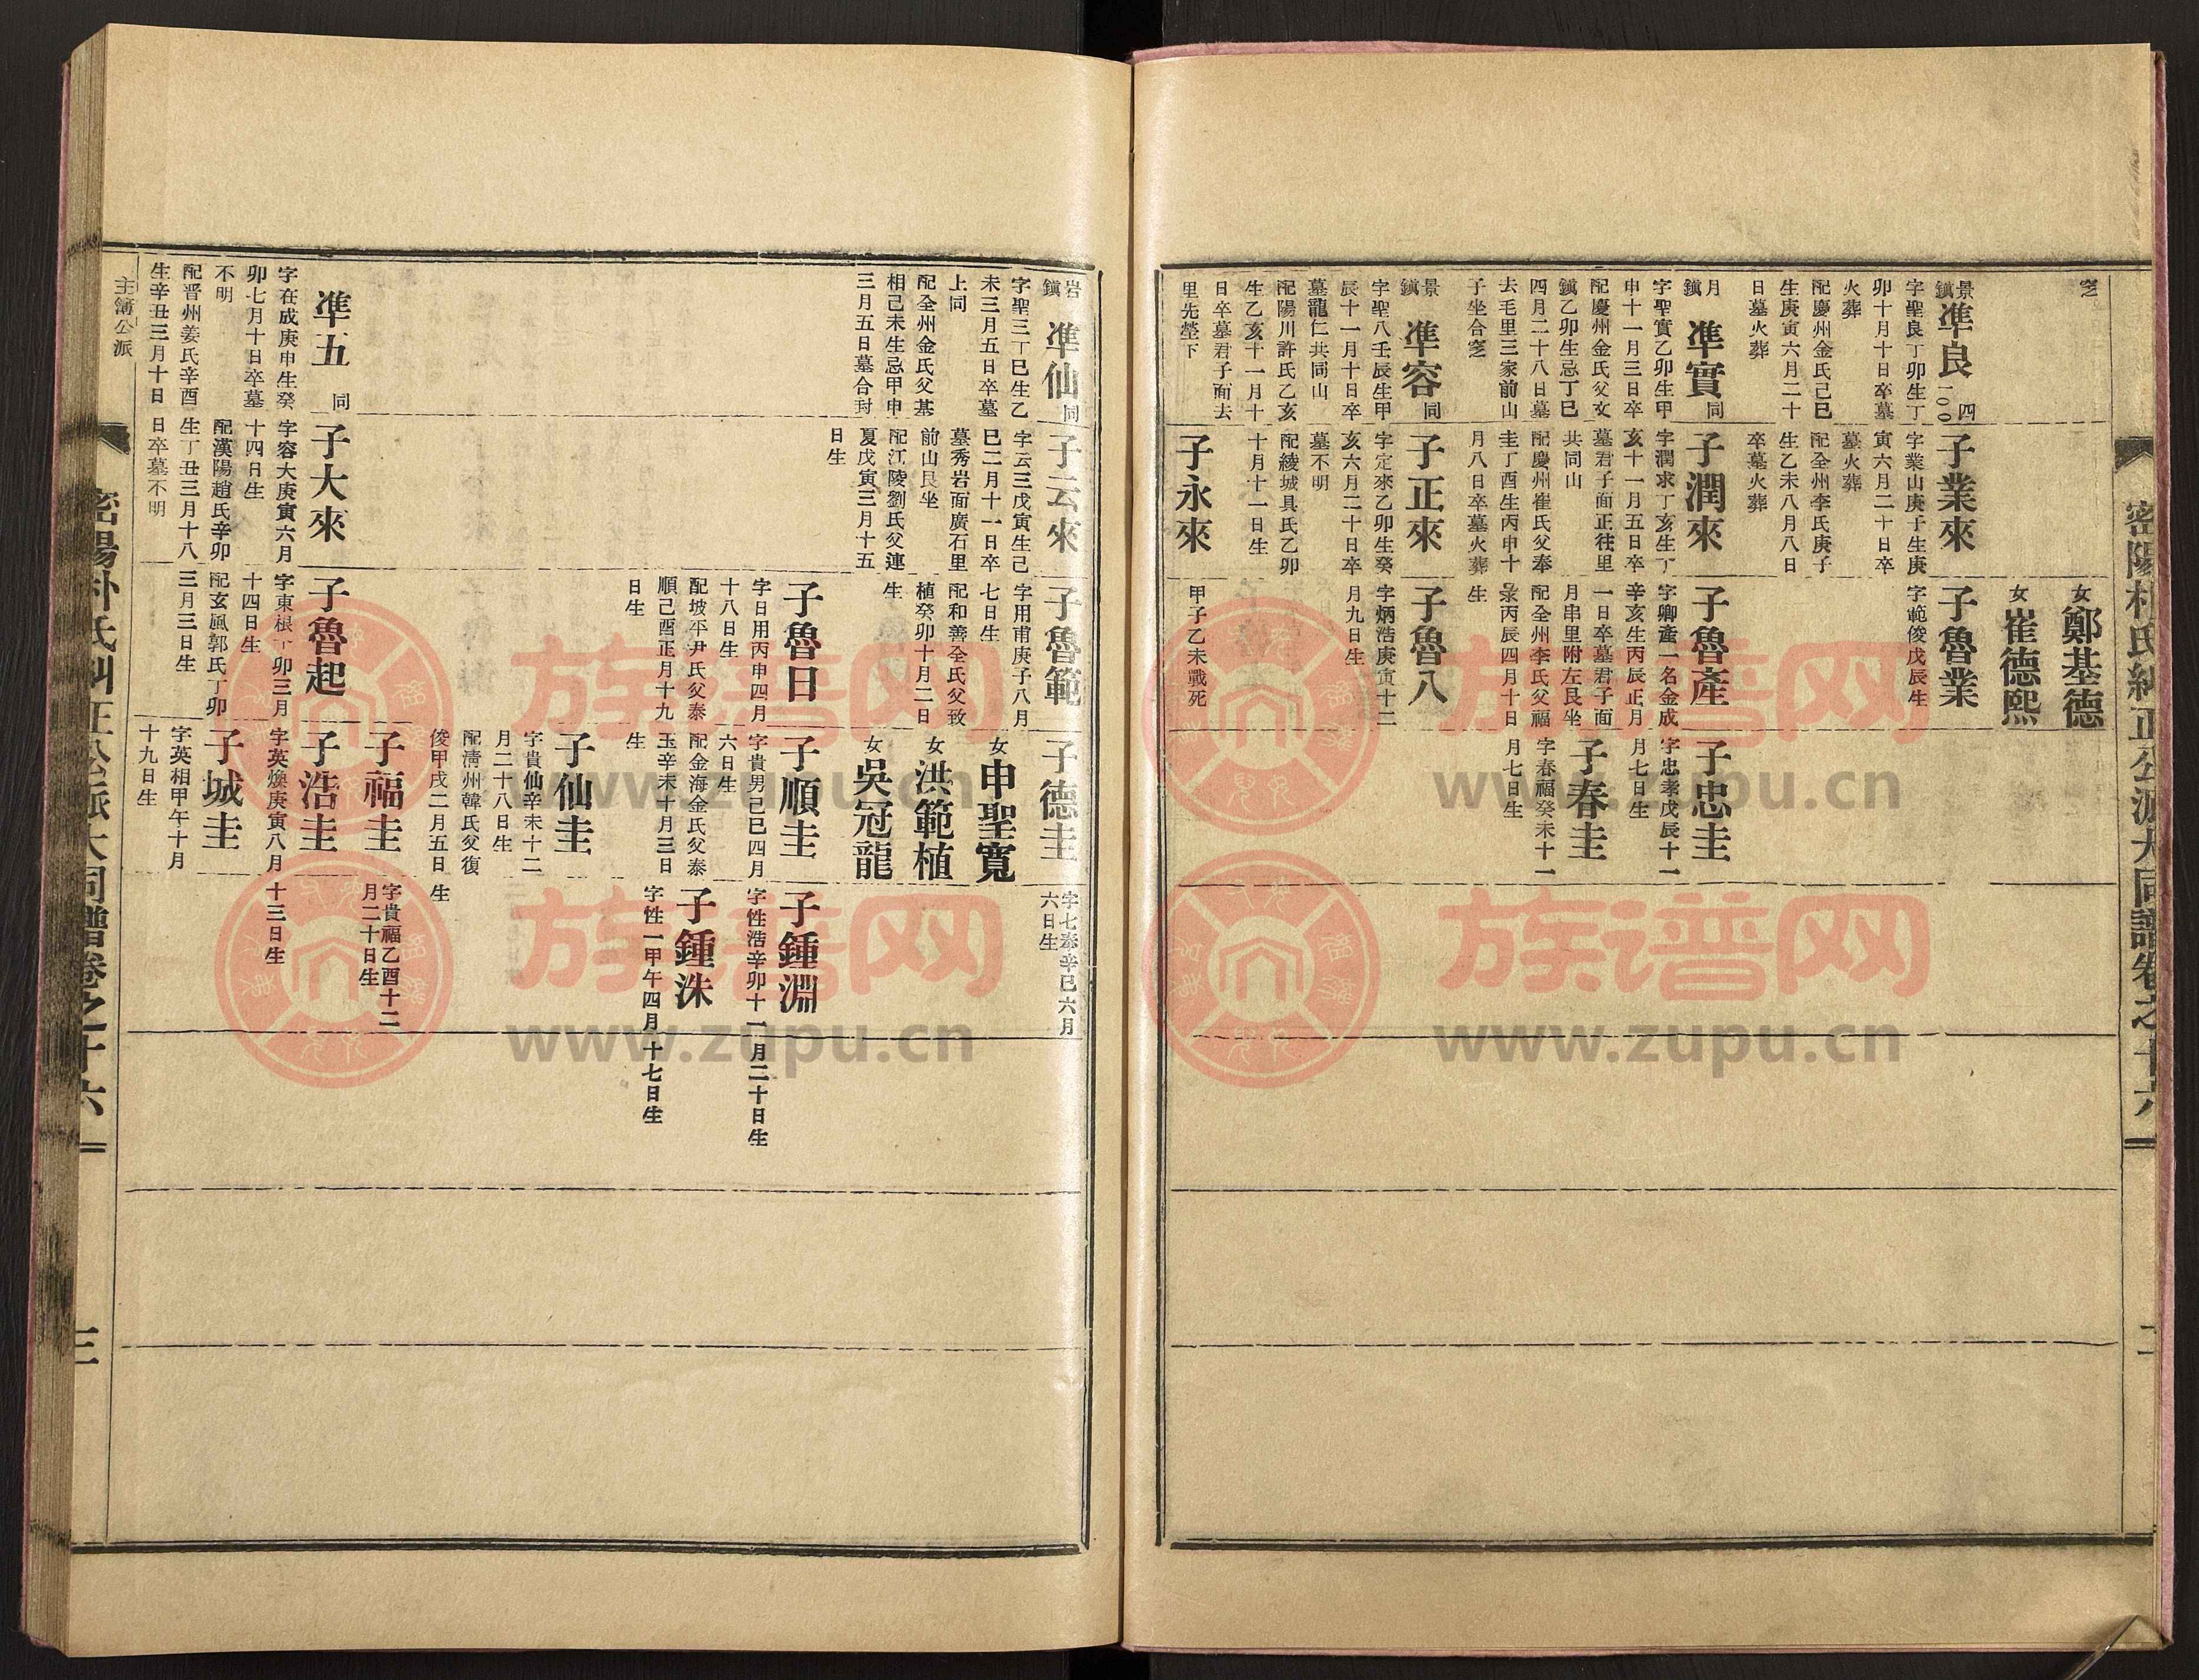 密陽朴氏糾正公派大同譜卷之十六
二
窆
女鄭基德
女崔德熙
景鎭
準良
四一〇〇
字聖良丁卯生丁
卯十月十日卒墓
火葬
配慶州金氏己巳
生庚寅六月二十
日墓火葬
子業來
字業山庚子生庚
寅六月二十日卒
墓火葬
配全州李氏庚子
生乙未八月八日
卒墓火葬
子魯業
字範俊戊辰生
月鎭
準實同
字聖實乙卯生甲
申十一月三日卒
配慶州金氏父文
鎭乙卯生忌丁巳
四月二十八日墓
去毛里三家前山
子坐合窆
子潤來
字潤求丁亥生丁
亥十一月五日卒
墓君子面正往里
共同山
配慶州崔氏父奉
圭丁酉生丙申十
月八日卒墓火葬
子魯產
字卿產一名金成
辛亥生丙辰正月
一日卒墓君子面
月串里附左艮坐
配全州李氏父福
彔丙辰四月十日
生
子忠圭
字忠孝戊辰十一
月七日生
子春圭
字春福癸未十一
月七日生
景鎭
準容同
字聖八壬辰生甲
辰十一月十日卒
墓龍仁共同山
配陽川許氏乙亥
生乙亥十一月十
日卒墓君子面去
里先塋下
子正來
字定來乙卯生癸
亥六月二十日卒
墓不明
配綾城具氏乙卯
十月十一日生
子魯八
字炳浩庚寅十二
月九日生
子永來
甲子乙未戰死
岩鎭
準仙同
字聖三丁巳生乙
未三月五日卒墓
上同
配全州金氏父基
相己未生忌甲申
三月五日墓合封
子云來
字云三戊寅生己
巳二月十一日卒
墓秀岩面廣石里
前山艮坐
配江陵劉氏父連
夏戊寅三月十五
日生
子魯範
字用甫庚子八月
七日生
配和善全氏父致
植癸卯十月二日
生
子德圭
字七奉辛巳六月
六日生
女申聖寬
女洪範植
女吳冠龍
子魯日
字日用丙申四月
十八日生
配坡平尹氏父泰
順己酉正月十九
日生
子順圭
字貴男己巳四月
六日生
配金海金氏父泰
玉辛未十月三日
生
子鍾淵
字性浩辛卯十一月二十日生
子鍾洙
字性一甲午四月十七日生
子仙圭
字貴仙辛未十二
月二十八日生
配淸州韓氏父復
俊甲戌二月五日
生
子福圭
字貴福乙酉十二
月二十日生
準五同
字在成庚申生癸
卯七月十日卒墓
不明
配晋州姜氏辛酉
生辛丑三月十日
日卒墓不明
子大來
字容大庚寅六月
十四日生
配漢陽趙氏辛卯
生丁丑三月十八
子魯起
字東根丁卯三月
十四日生
配玄風郭氏丁卯
三月三日生
子浩圭
字英煥庚寅八月
十三日生
子城圭
字英相甲午十月
十九日生
主簿公派
密陽朴氏糾正公派大同譜卷之十六
三
族谱网
www.zupu.cn
族谱网
www.zupu.cn
族谱网
www.zupu.cn
族谱网
www.zupu.cn